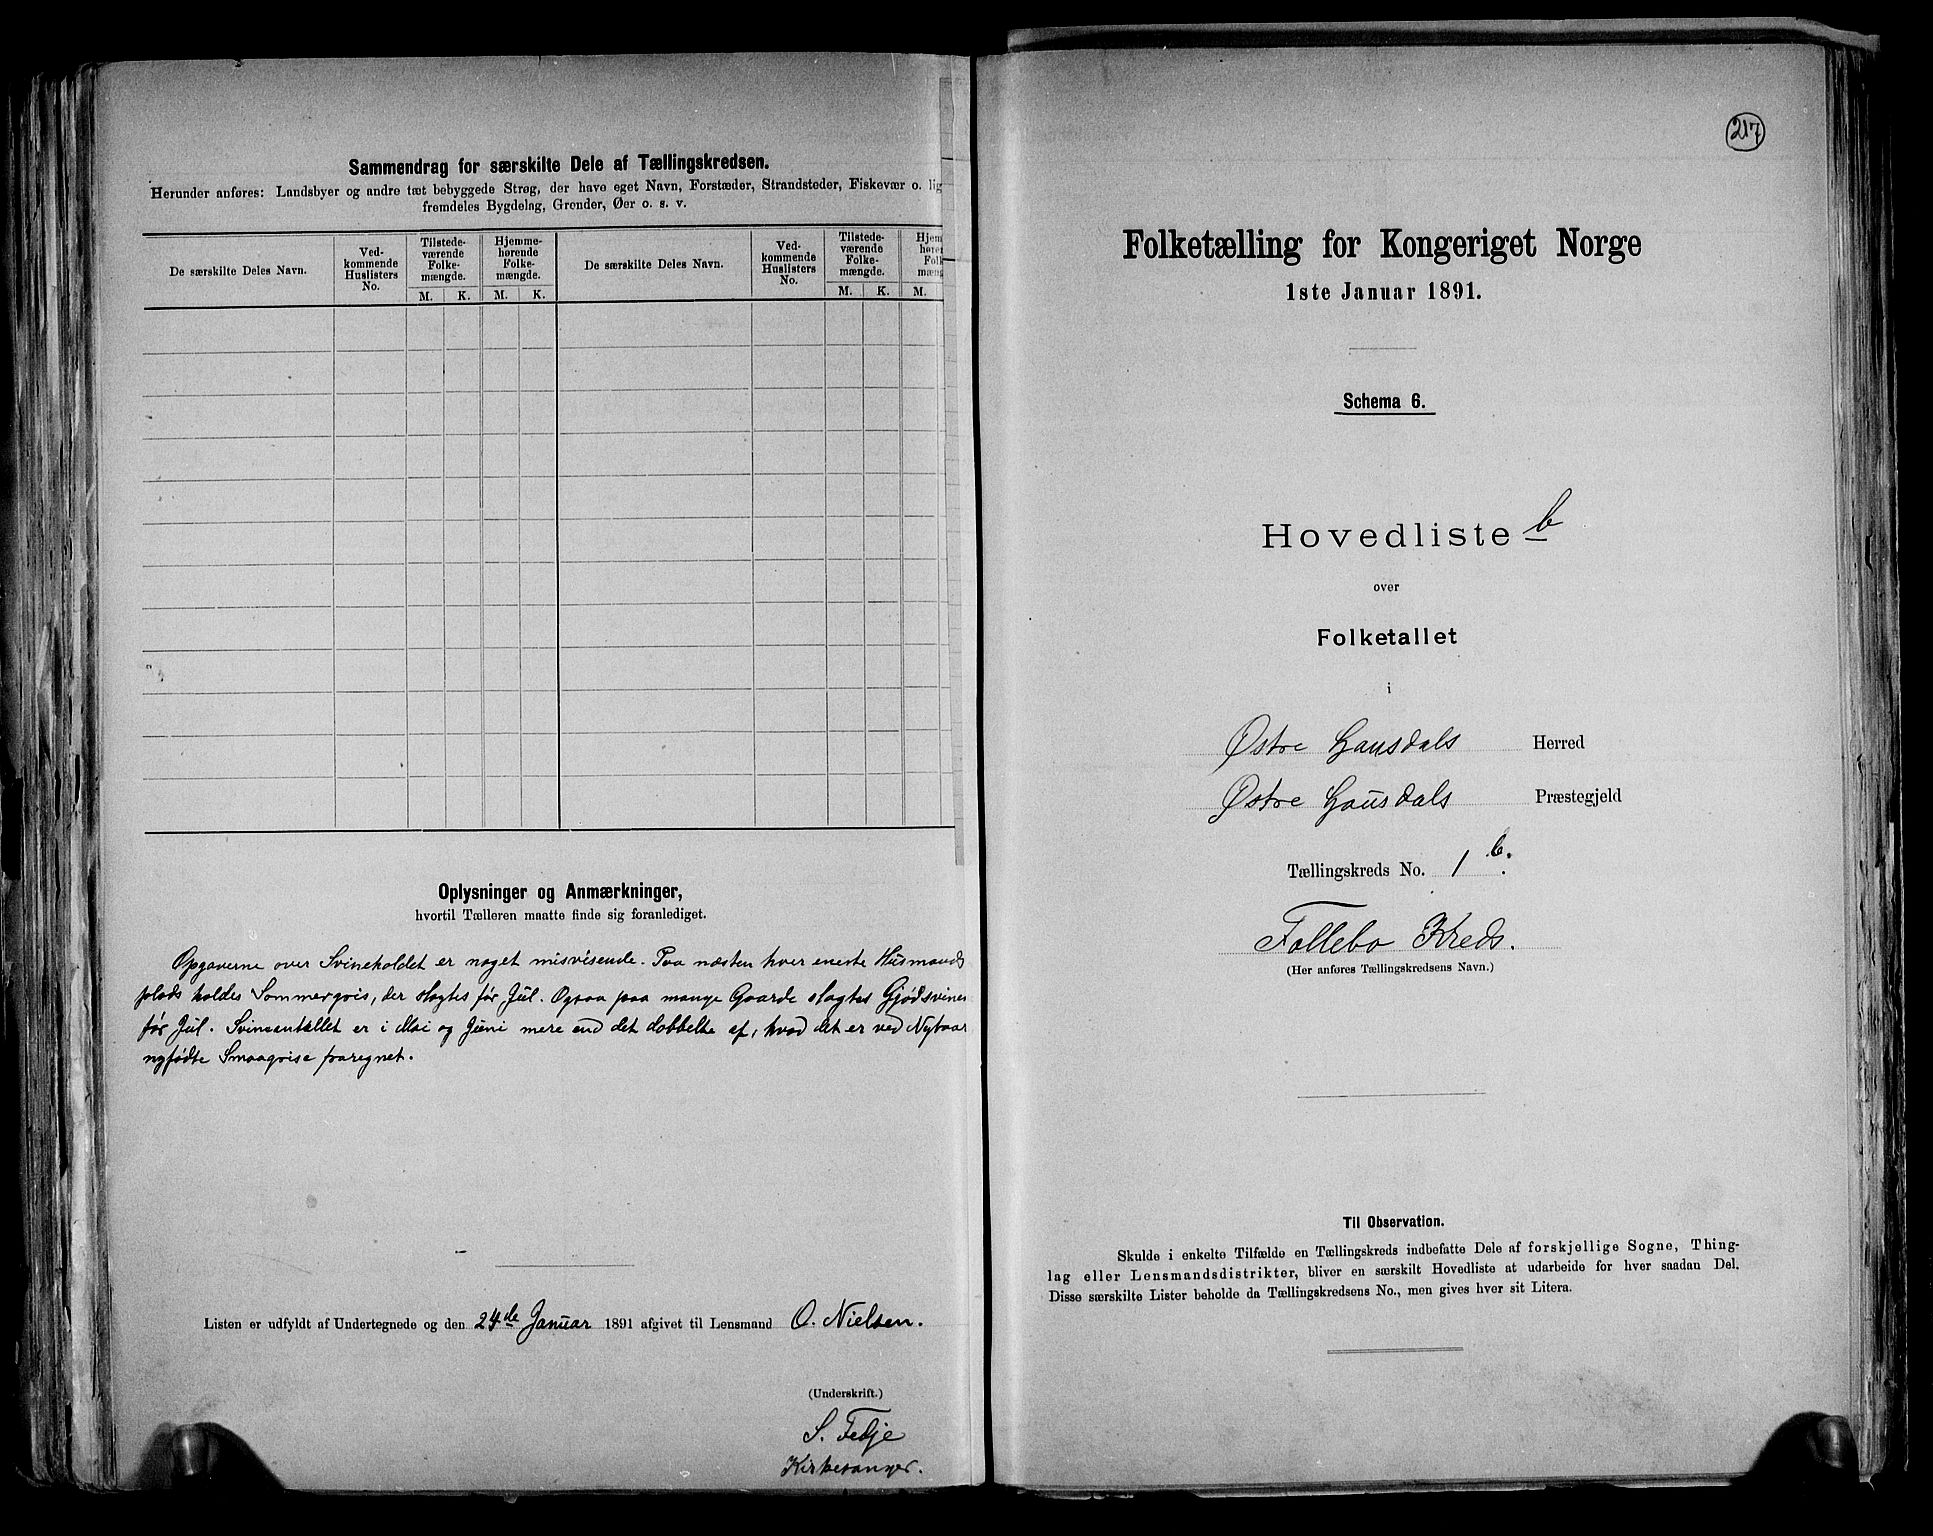 Sammendrag for særskilte Dele af Tællingskredsen.
Herunder anføres: Landsbyer og andre tæt bebyggede Strøg, der have eget Navn, Forstæder, Strandsteder, Fiskevær o. lig
fremdeles Bygdelag, Grender, Øer o. s. v.
De særskilte Deles Navn.
Ved-
kommende
Huslisters
No.
Tilstede-
værende
Folke-
mængde.
Hjemme-
hørende
Folke-
mængde.
M. K. M. K.
De særskilte Deles Navn.
Ved-
kommende
Huslisters
No.
Tilstede-
værende
Folke-
mængde.
Hjem
høre
Folk
mæng
M. K. M.
Oplysninger og Anmærkninger,
hvortil Tælleren maatte finde sig foranlediget.
Opgaverne over Svineholdet er noget misvisende. Paa næsten hver eneste Husmands
plads holdes Sommergris, der slagtes før Jul. Ogsaa paa mange Gaarde slagtes Gjødsvinene
før Jul. Svineantallet er i Mai og Juni mere end det dobbelte af, hvad det er ved Nytaar
nyfødte Smaagrise fraregnet.
Listen er udfyldt af Undertegnede og den 24de Januar 1891 afgivet til Lensmand O. Nielsen.
(Underskrift.)
S. Fedje
Kirkesanger.
217
Folketælling for Kongeriget Norge
1ste Januar 1891.
Schema 6.
Hovedliste b
over
Folketallet
i
Østre Gausdals Herred
Østre Gausdals Præstegjeld
Tællingskreds No. 1 b.
Follebo Kreds.
(Her anføres Tællingskredsens Navn.)
Til Observation.
Skulde i enkelte Tilfælde en Tællingskreds indbefatte Dele af forskjellige Sogne, Thing-
lag eller Lensmandsdistrikter, bliver en særskilt Hovedliste at udarbeide for hver saadan Del.
Disse særskilte Lister beholde da Tællingskredsens No., men gives hver sit Litera.